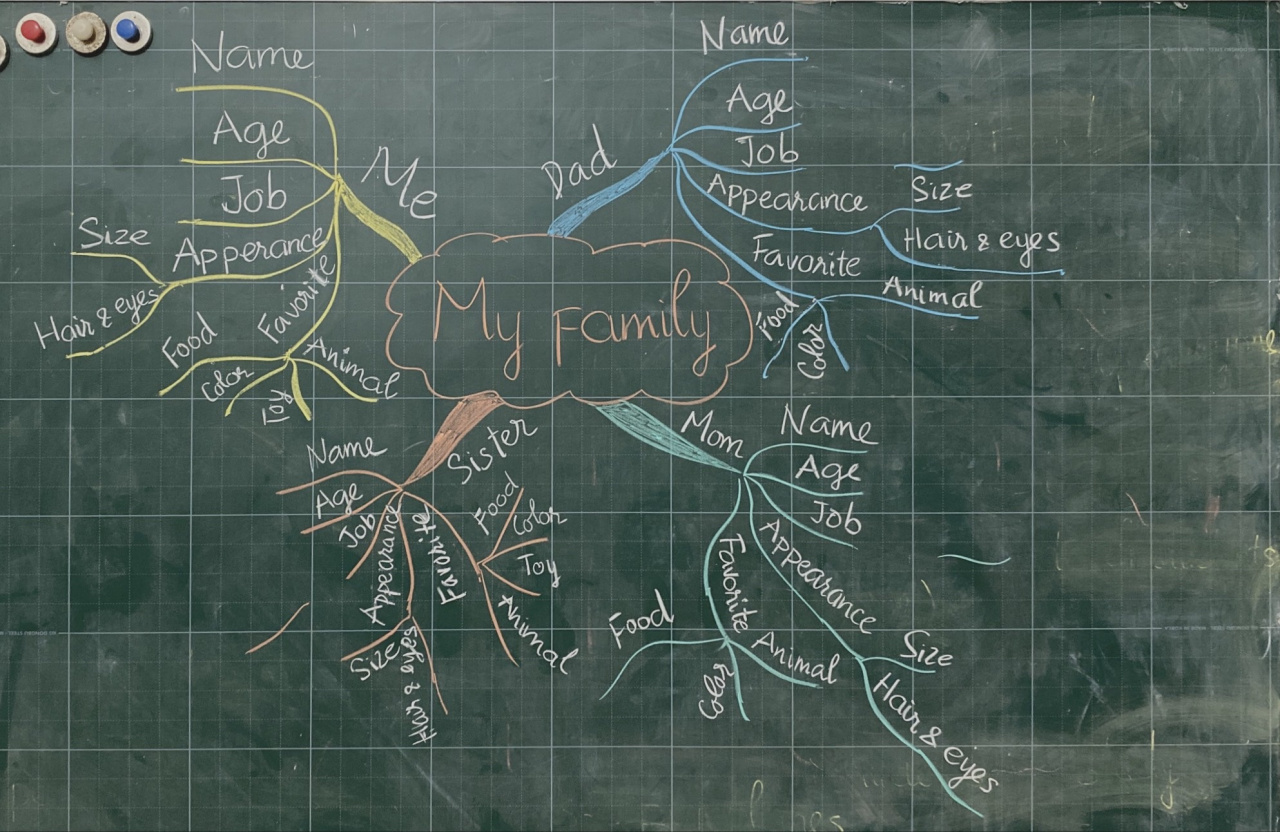 My Family
Me
Name
Age
Job
Apperance
Size
Hair & eyes
Favorite
Food
Color
Toy
Animal
Dad
Name
Age
Job
Appearance
Size
Hair & eyes
Favorite
Food
Color
Animal
Sister
Name
Age
Job
Appearance
Size
Hair & eyes
Favorite
Food
Color
Toy
Animal
Mom
Name
Age
Job
Appearance
Size
Hair & eyes
Favorite
Food
Color
Animal